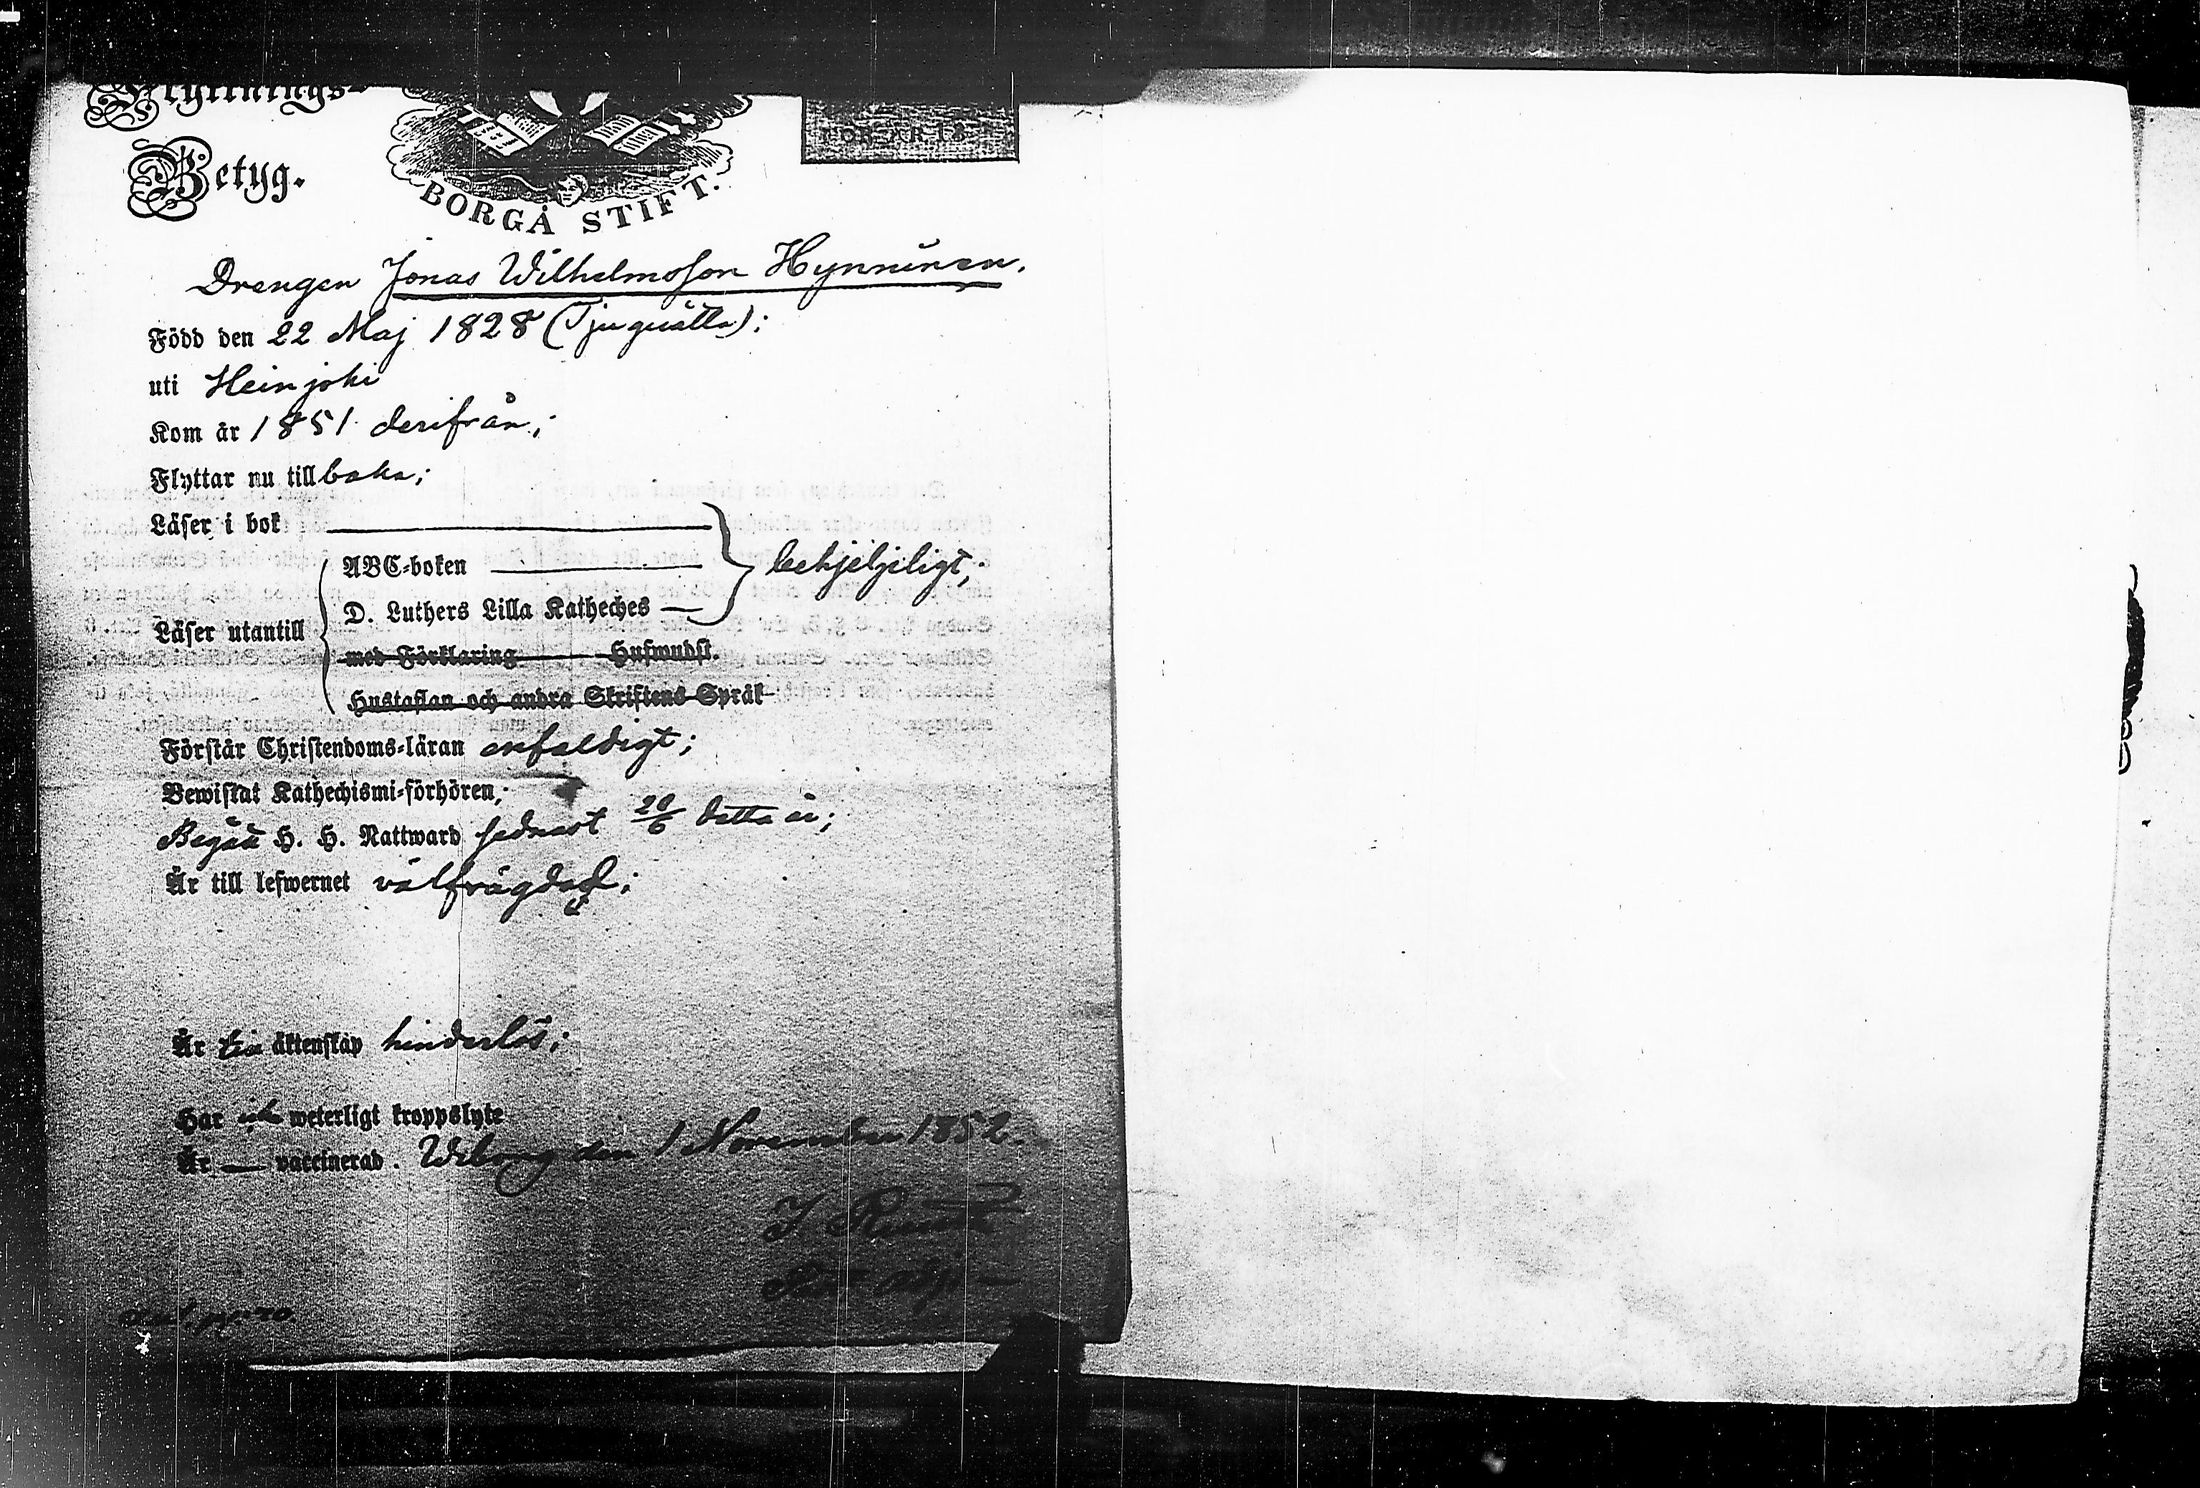 Flyttnings-
Betyg.
BORGÅ STIFT.
FÖR ÅR 18
Drengen Jonas Wilhelmsson Hynninen.
Född den 22 Maj 1828 (Tjuguåtta);
uti Heinjoki
Kom år 1851 derifrån;
Flyttar nu tillbaka;
Läser i bok
ABC-boken
behjelpligt;
D. Luthers Lilla Katheches
Läser utantill
med Förklaring Hufwudst.
Hustaflan och andra Skriftens Språk
Förstår Christendoms-läran enfaldigt;
Bewistat Kathechismi-förhören;
Begått H. H. Nattward sednast 20/6 detta år;
Är till lefwernet välfrägdad;
Är till äktenskap hinderlös;
Har icke weterligt kroppslyte
Är — vaccinerad. Wiborg den 1 November 1852.